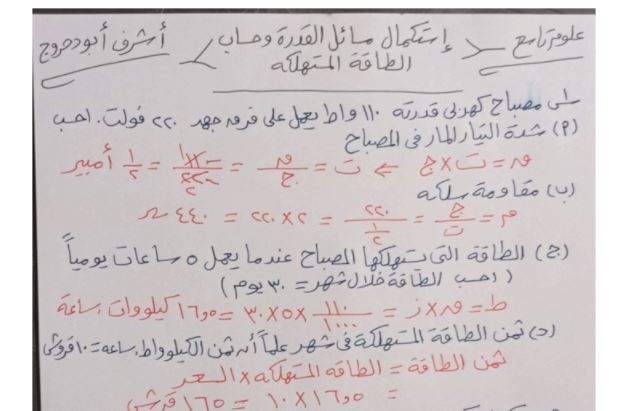 علوم تاسع
إستكمال مسائل القدرة وحساب
الطاقة المستهلكه
أشرف أبودحروج
س١ مصباح كهربي قدرته ١١٠ واط يعمل على فرق جهد ٢٢٠ فولت. احسب
(٩) شدة التيار المار في المصباح
قد = ت × ج ⇐ ت = قد/ج = ١١٠/٢٢٠ = ١/٢ أمبير
(ب) مقاومة سلكه
م = ج/ت = ٢٢٠/(١/٢) = ٢ × ٢٢٠ = ٤٤٠
(ج) الطاقة التي يستهلكها المصباح عندما يعمل ٥ ساعات يومياً
(احسب الطاقة خلال شهر = ٣٠ يوم)
ط = قد × ز = ١١٠/١٠٠٠ × ٥ × ٣٠ = ١٦,٥ كيلووات.ساعة
(د) ثمن الطاقة المستهلكة في شهر علماً أن ثمن الكيلوواط.ساعة = ١٠ قروش
ثمن الطاقة = الطاقة المستهلكه × السعر
= ١٦,٥ × ١٠ = ١٦٥ قرش